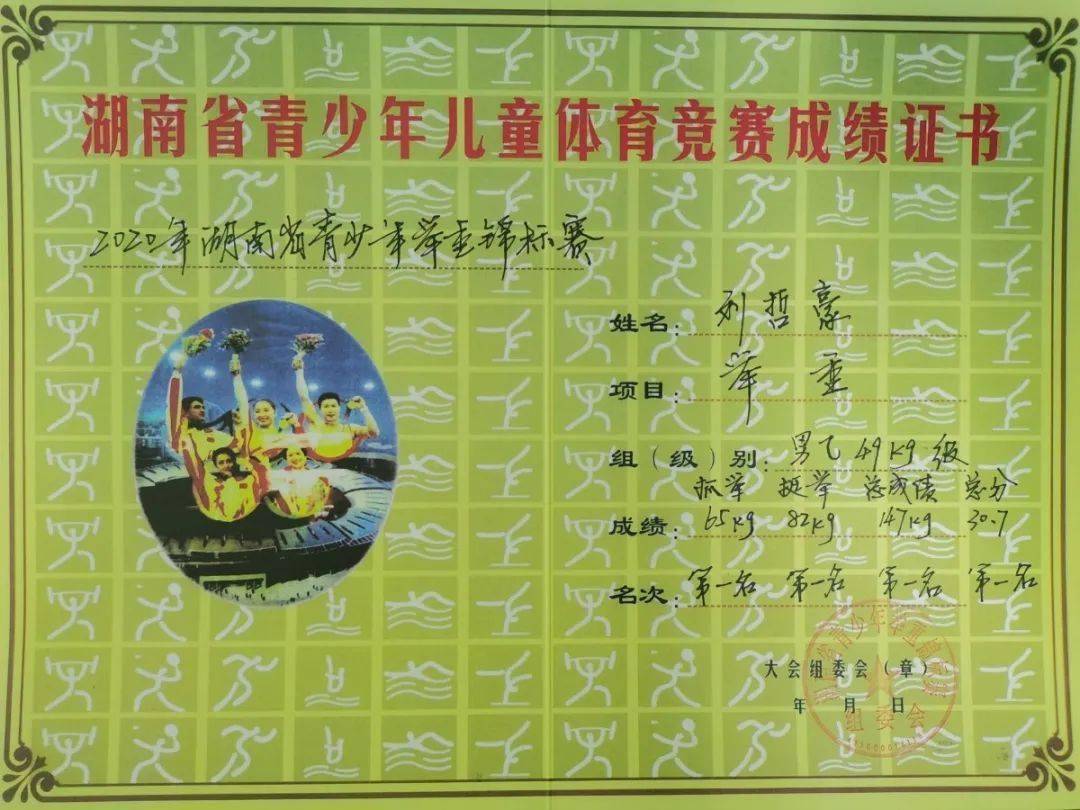 湖南省青少年儿童体育竞赛成绩证书
2020年湖南省青少年举重锦标赛
姓名：刘哲豪
项目：举重
组（级）别：男乙49kg级
抓举 挺举 总成绩 总分
成绩：65kg 82kg 147kg 30.7
名次：第一名 第一名 第一名 第一名
大会组委会（章）
年 月 日
组委会